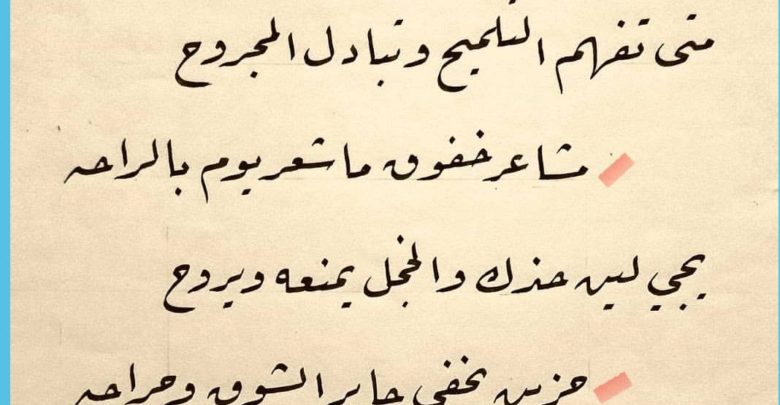 متى تفهم التلميح وتبادل المجروح
مشاعر خفوق ما شعر يوم بالراحه
يجي لين حذك والخجل يمنعه ويروح
حزين يخفي جاير الشوق وجراحه